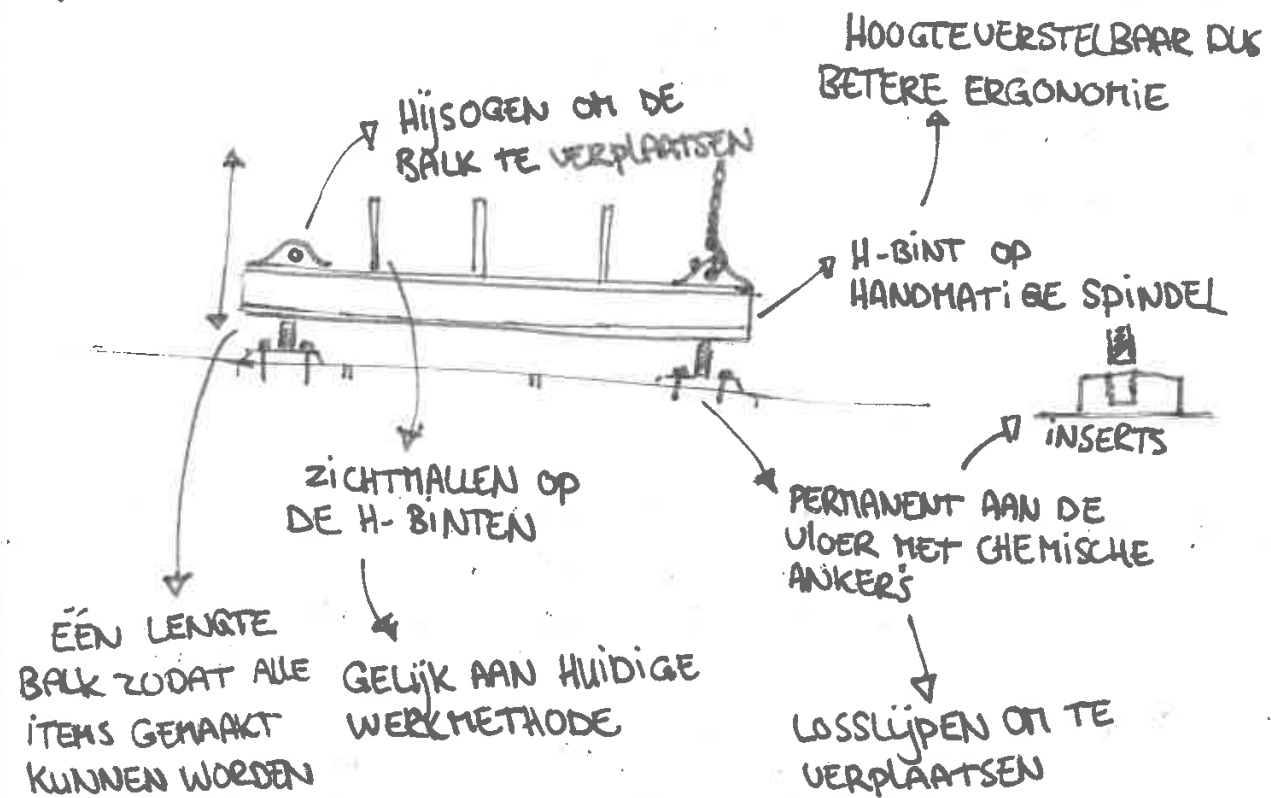 HOOGTEVERSTELBAAR DUS
BETERE ERGONOMIE
HIJSOGEN OM DE
BALK TE VERPLAATSEN
H-BINT OP
HANDMATIGE SPINDEL
INSERTS
ZICHTMALLEN OP
DE H-BINTEN
PERMANENT AAN DE
VLOER MET CHEMISCHE
ANKERS
ÉÉN LENGTE
BALK ZODAT ALLE
ITEMS GEMAAKT
KUNNEN WORDEN
GELIJK AAN HUIDIGE
WERKMETHODE
LOSSLIJPEN OM TE
VERPLAATSEN